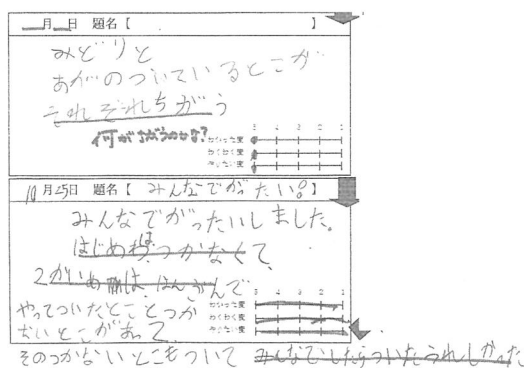 月 日 題名【 】
みどりと
あかのついているとこが
それぞれちがう
何がちがうのかな?
わかった度 5 4 3 2 1
わくわく度
やりたい度
10月25日 題名【 みんなでがったい!! 】
みんなでがったいしました。
はじめは、つかなくて、
2かいめは、はんぶんで
やってついたとことつか
ないとこがあって
わかった度 5 4 3 2 1
わくわく度
やりたい度
そのつかないとこもついて みんなでしたらついたうれしかった